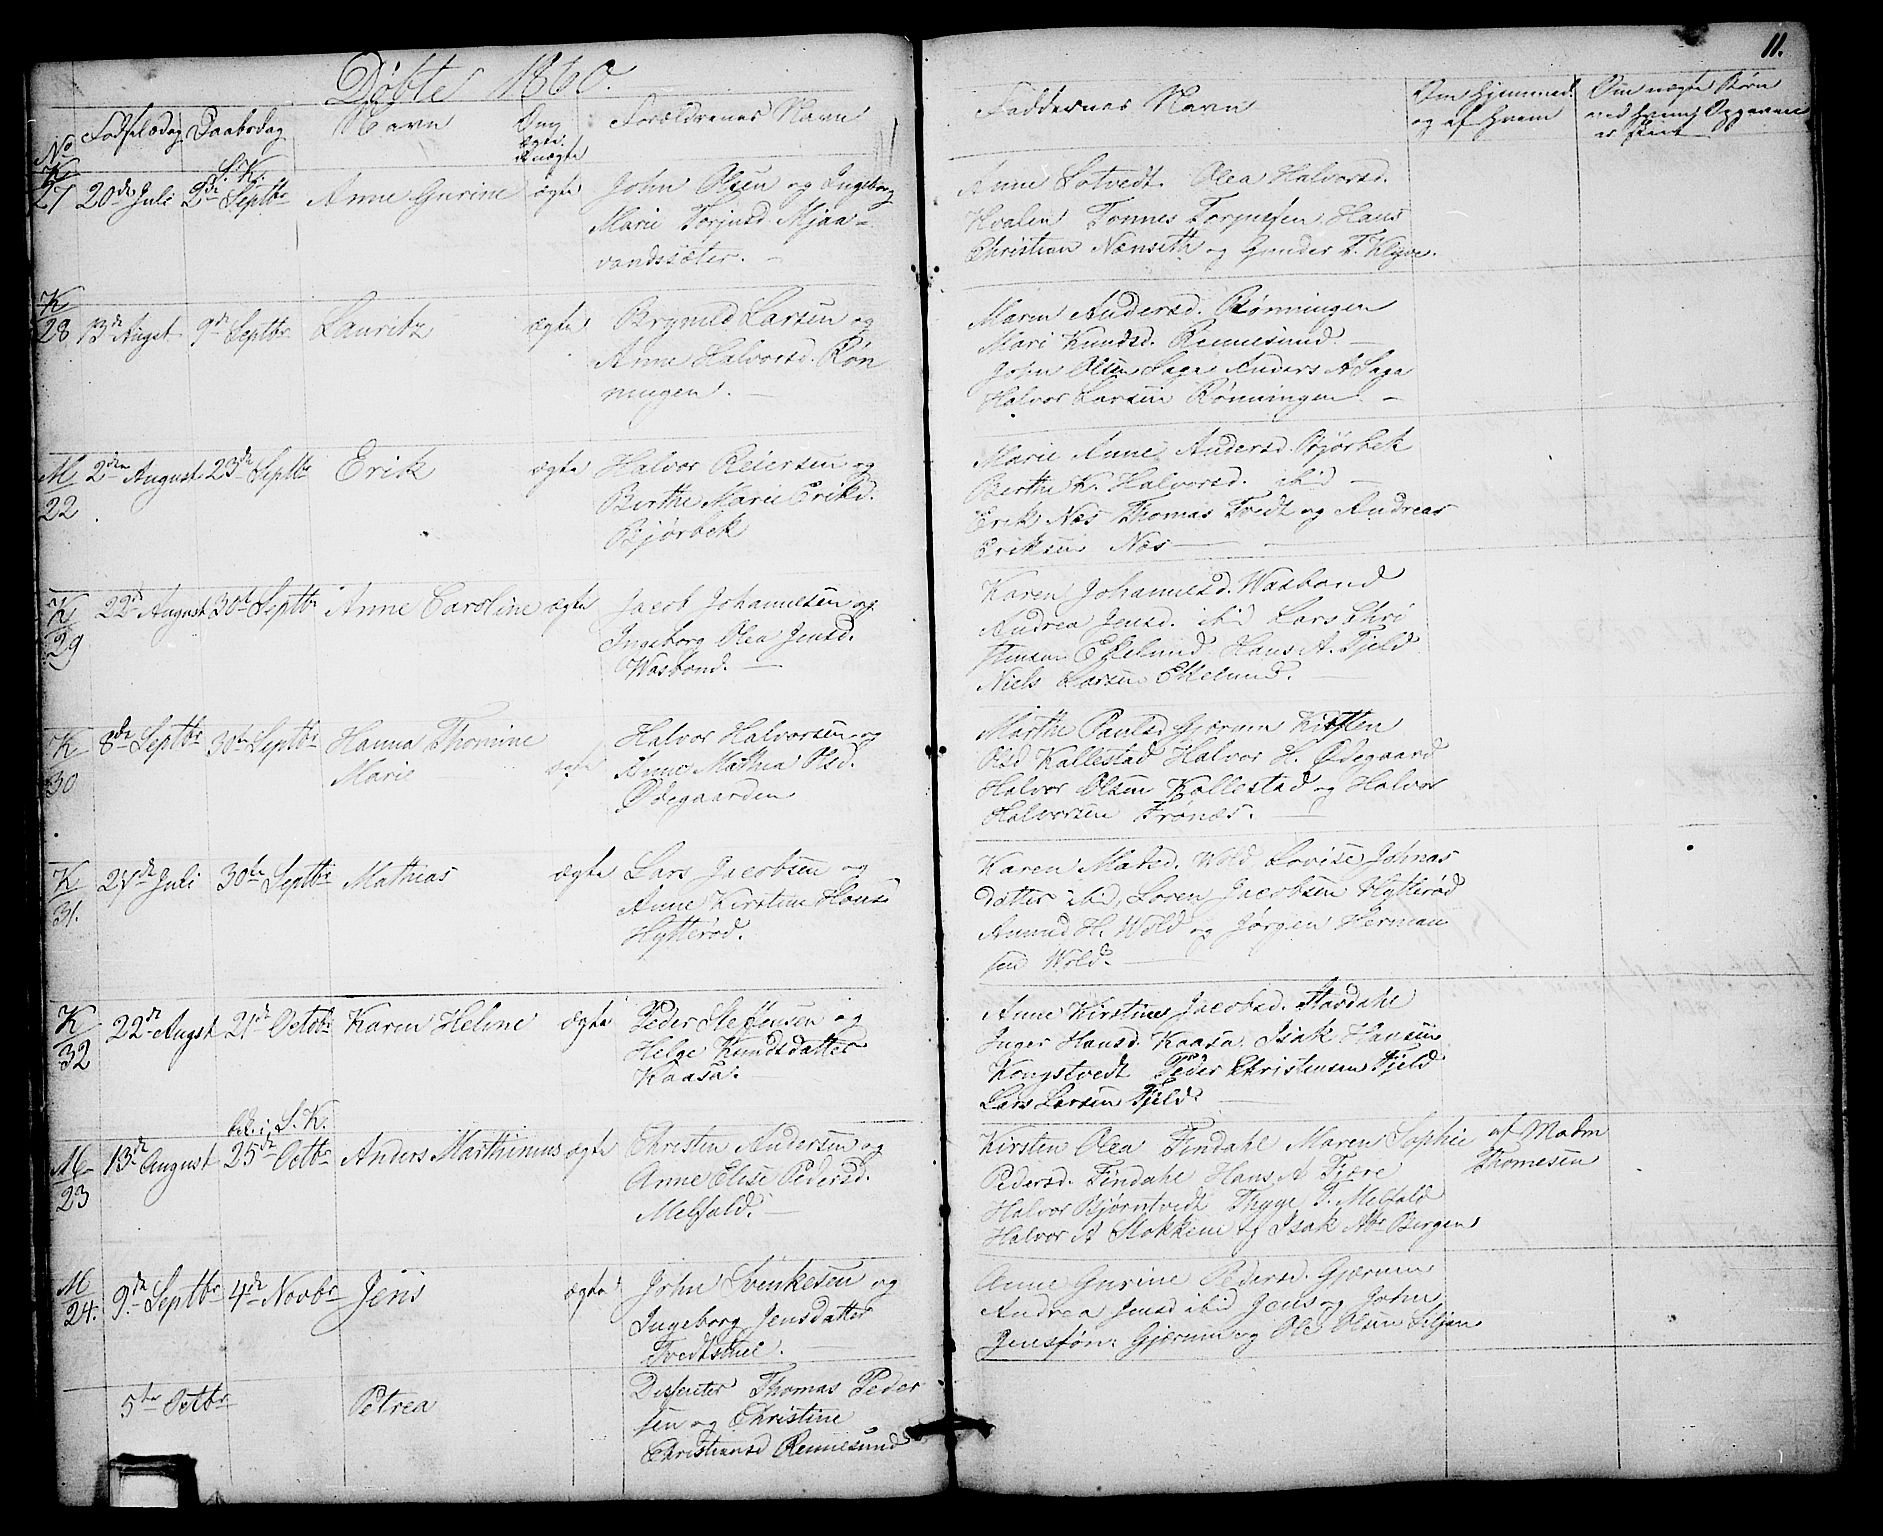 Døbte 1860.
11.
No Fødselsdag Daabsdag Navn Om ægte el. uægte Forældrenes Navn Faddernes Navn Om Hjemmed. og af hvem Om uægte Børn
S. K.
K 27 20de Juli 2de Septbr Anne Gurine ægte John Olsen og Ingeborg
Marie Torjusd. Mjaa-
vandssæter. -
Anne Sotvedt. Olea Halvorsd.
Hvalen Tønnes Torjusen Hans
Christian Nenseth og Gunder T. Kleve.
K 28 13de Augst 9de Septbr Lauritz ægte Brynild Larsen og
Anne Halvorsd. Røn
ningen. -
Maren Andersd. Rønningen
Mari Knudsd. Rennesund -
John Olsen Saga Anders A Saga
Halvor Larsen Rønningen. -
M 22 2den August 23de Septbr Erik ægte Halvor Reiersen og
Berthe Marie Eriksd.
Bjørbek
Marie Anne Andersd. Bjørbek
Berthe K. Halvorsd. ibid -
Erik Næs Thomas Tvedt og Andreas
Eriksen Næs -
K 29 22de August 30te Septbr Anne Caroline ægte Jacob Johannesen og
Ingeborg Olea Jensd.
Wasbond. -
Karen Johannesd. Wasbond
Andrea Jensd. ibid Lars Chri
stensen Ekelund, Hans A. Fjeld
Niels Larsen Ekelund. -
K 30 8de Septbr 30te Septbr Hanna Thomine
Marie ægte Halvor Halvorsen og
Anne Mathea Olsd.
Ødegaarden
Marthe Paulsd Gjerum Kirsten
Olsd Kallestad Halvor H. Ødegaard
Halvor Olsen Kallestad og Halvor
Halvorsen Frønæs. -
K 31. 27de Juli 30te Septbr Mathias ægte Lars Jacobsen og
Anne Kirstine Hansd
Hytterød.
Karen Matsd. Wold Lovise Johnas
datter ibid, Soren Jacobsen Hytterød
Amund H. Wold og Jørgen Herman
sen Wold. -
K 32 22de Augst 21de Octobr Karen Heline ægte Peder Steffensen og
Helge Knudsdatter
Kaasa.
Anne Kirstine Jacobsd. Flavdahl
Inger Hansd. Kaasa. Isak Hansen
Kongstvedt Peder Christensen Fjeld
Lars Larsen Fjeld. -
bek. i S. K.
M 23 13de August 25de Octbr Anders Marthinius ægte Christen Andersen og
Anne Elise Pedersd.
Melfald. -
Kirsten Olea Findahl Maren Sophie
Pedersd. Findahl Hans A Fjære
Halvor Bjørntvedt Thyge P. Melfald
Halvor A Stokkene og Isak Abr. Bergen
af Madm
Thomesen
M 24. 9de Septbr 4de Novbr Jens ægte John Svenkesen og
Ingeborg Jensdatter
Tvedtstuel. -
Anne Gurine Pedersd. Gjerum
Andrea Jensd ibid Jens og John
Jensføn. Gjerum og Ole Olsen Siljan
5te Octbr Petrea Dissenter Thomas Peder
sen og Christine
Christiansd Rennesund